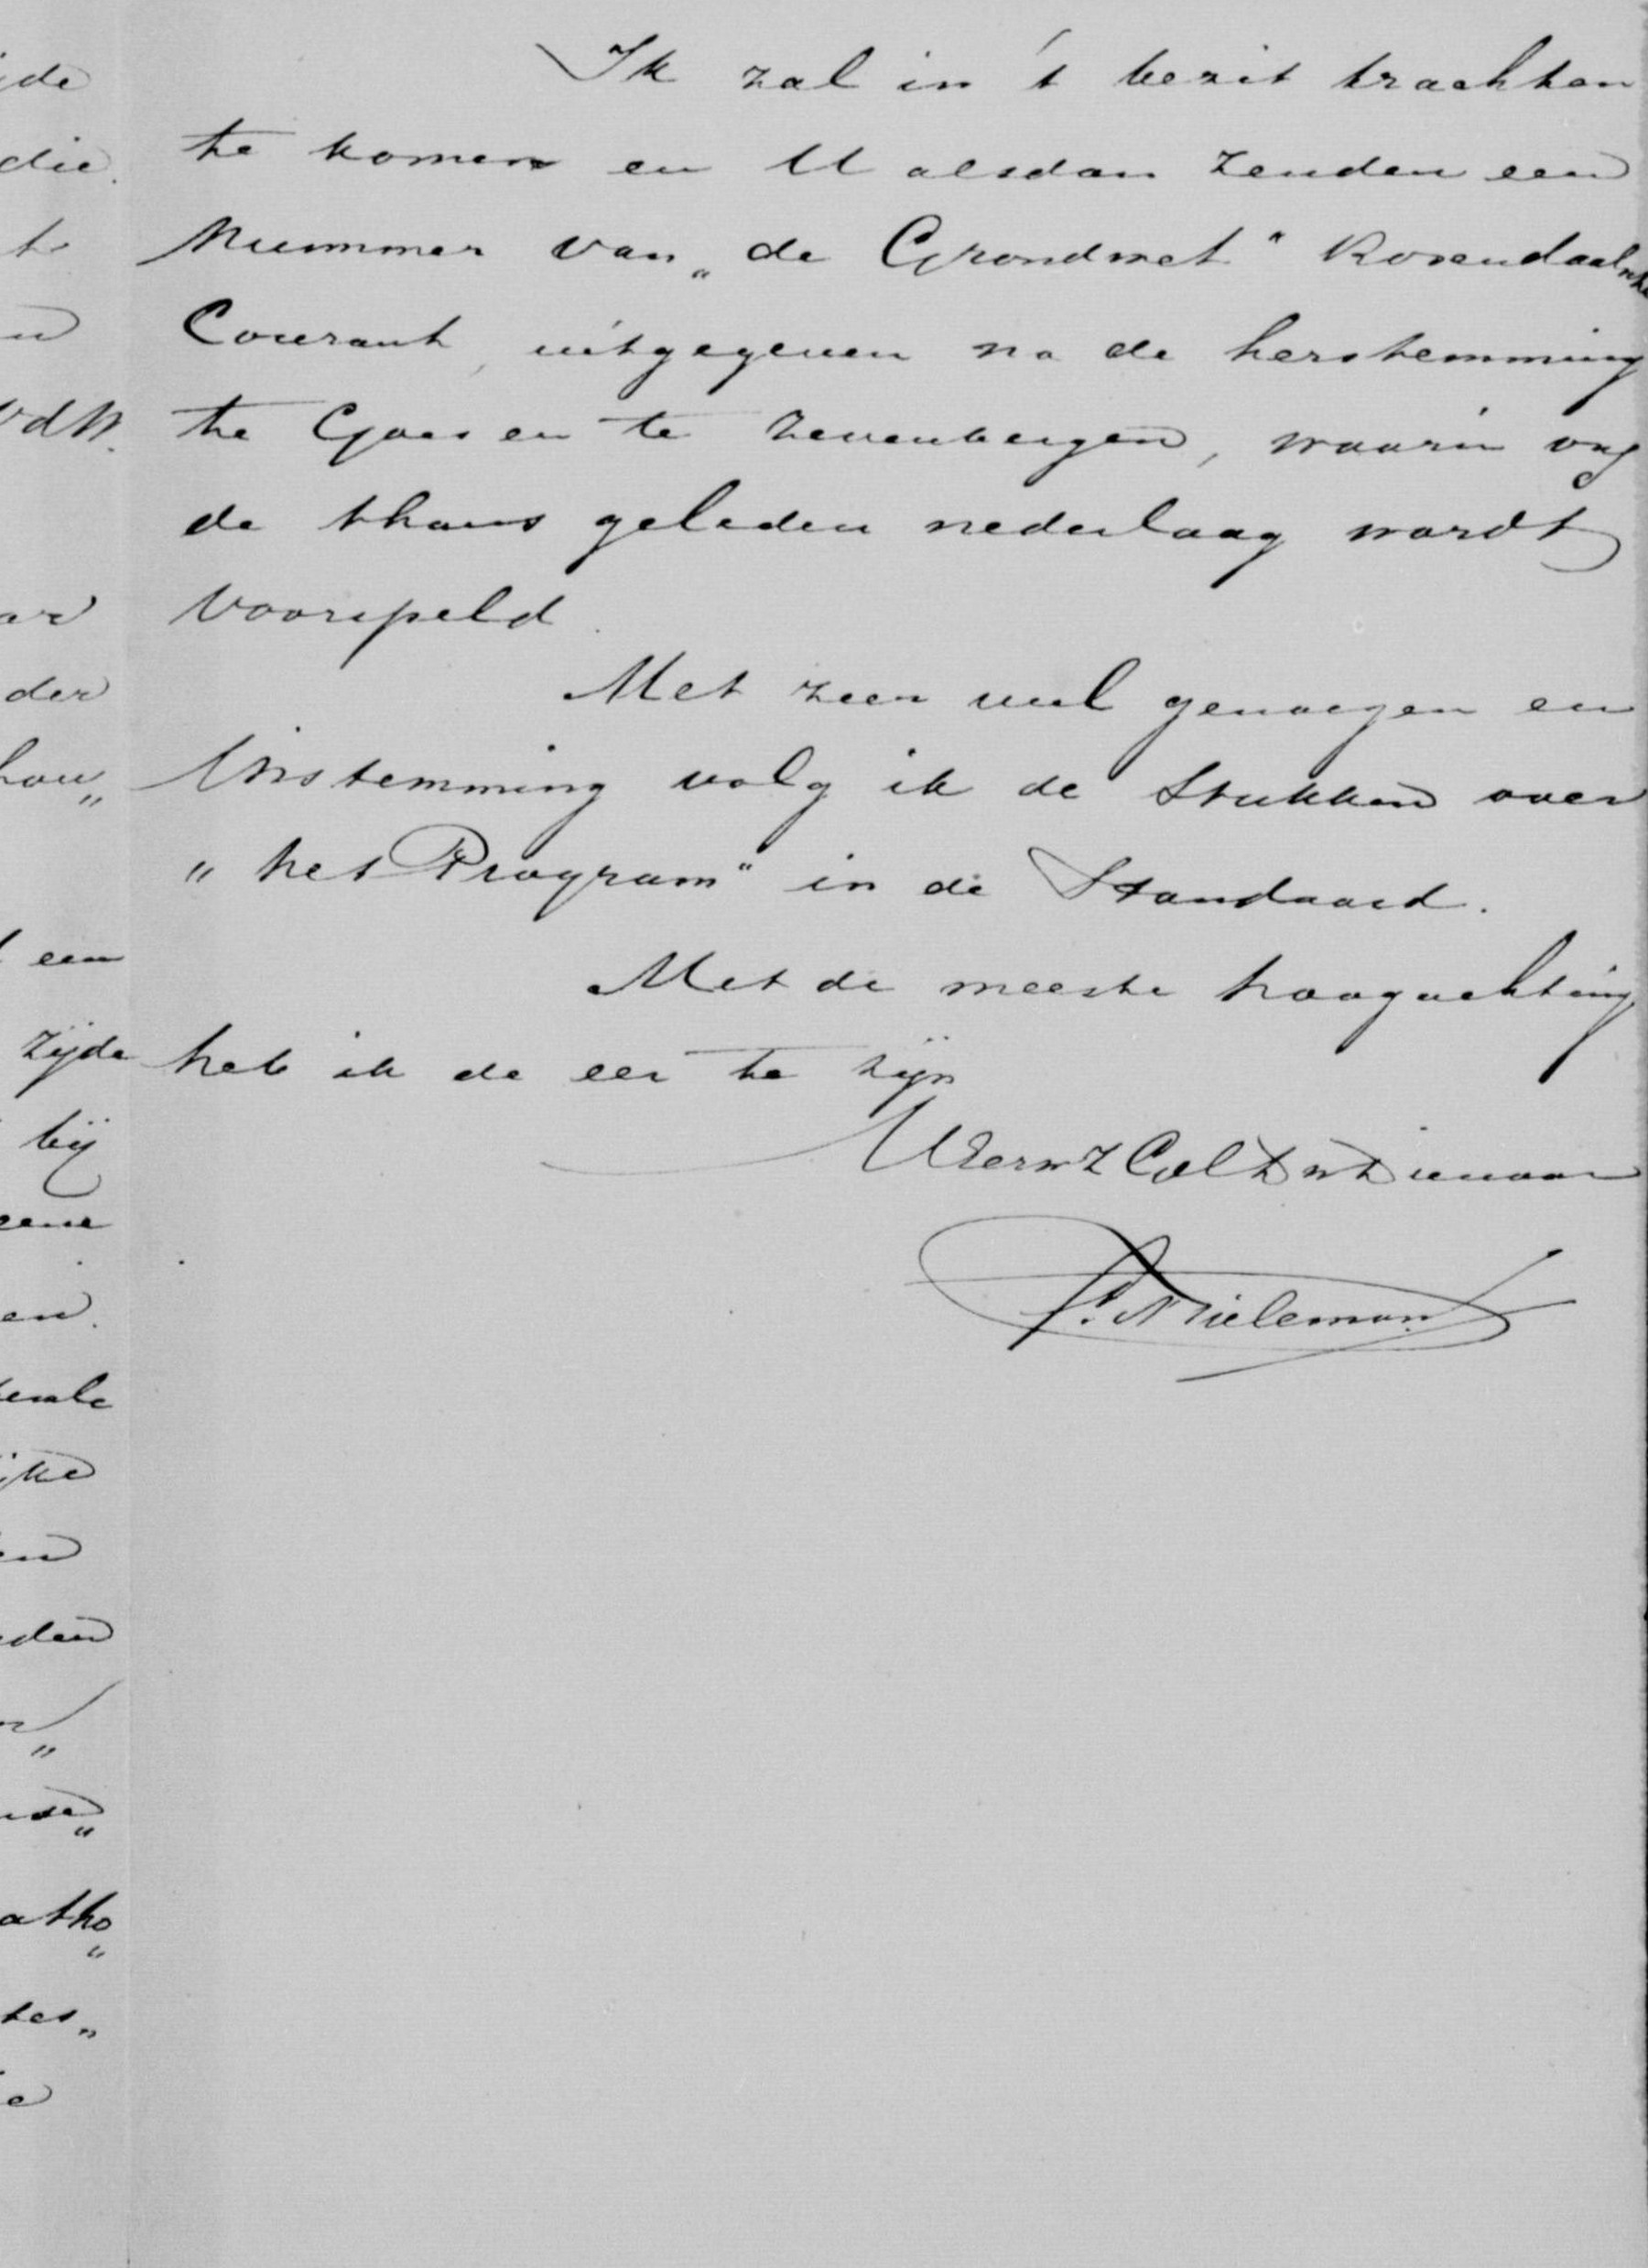 Ik zal in 't bezit trachten
te komen en U alsdan zenden een
Nummer van „de Grondwet" Rosendaalsche
Courant, uitgegeven na de herstemming
te Goes en te Zevenbergen, waarin
de thans geleden nederlaag wordt
voorspeld.
Met zeer veel genoegen en
Instemming volg ik de Stukken over
"het Program" in de Standaard.
Met de meeste hoogachting
heb ik de eer te zijn
UEerw Dienaar
Tieleman
ijde
die
te
ar
der
hou„
een
zijde
bij
eene
en
ijke
en
den
atho„